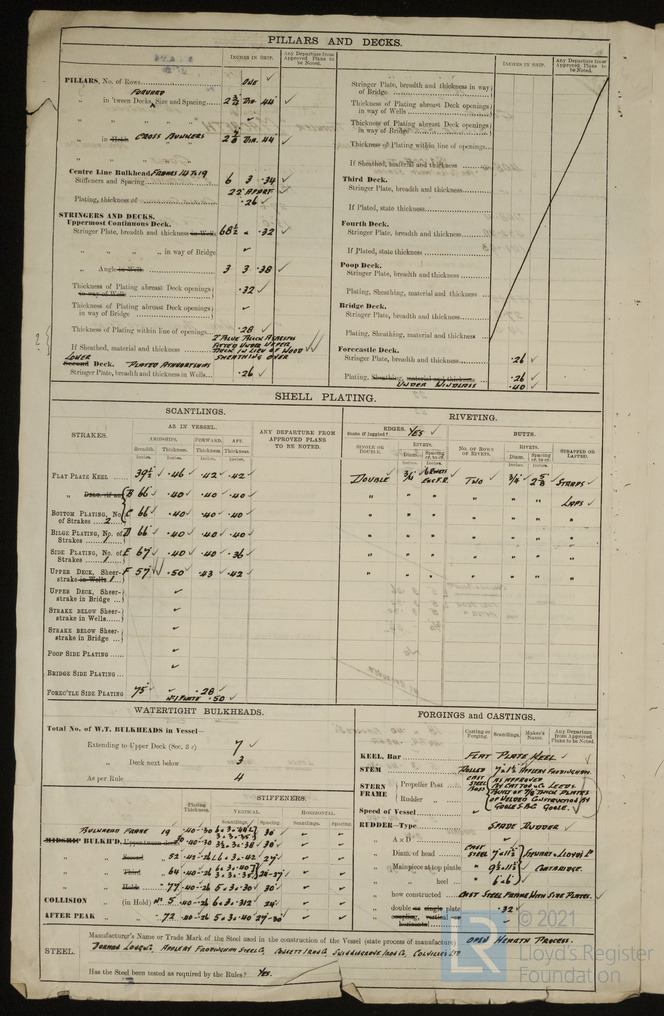 PILLARS AND DECKS.
INCHES IN SHIP.
Any Departure from Approved Plans to be Noted.
PILLARS, No. of Rows ONE
FORWARD
" in 'tween Decks, Size and Spacing
" in Hold CROSS BUNKERS
Centre Line Bulkhead FRAMES 14 TO 19
Stiffeners and Spacing 6 3 .34
22" APART
Plating, thickness of .26
STRINGERS AND DECKS.
Uppermost Continuous Deck.
Stringer Plate, breadth and thickness in Wells 68½ × .32
" " " in way of Bridge
" Angle in Wells 3 3 .38
Thickness of Plating abreast Deck openings in way of Wells .32
Thickness of Plating abreast Deck openings in way of Bridge
Thickness of Plating within line of openings .28
If Sheathed, material and thickness
LOWER
Second Deck. PLATED ATHWARTSHIPS
Stringer Plate, breadth and thickness in Wells .26
INCHES IN SHIP.
Any Departure from Approved Plans to be Noted.
Stringer Plate, breadth and thickness in way of Bridge
Thickness of Plating abreast Deck openings in way of Wells
Thickness of Plating abreast Deck openings in way of Bridge
Thickness of Plating within line of openings
If Sheathed, material and thickness
Third Deck.
Stringer Plate, breadth and thickness
If Plated, state thickness
Fourth Deck.
Stringer Plate, breadth and thickness
If Plated, state thickness
Poop Deck.
Stringer Plate, breadth and thickness
Plating, Sheathing, material and thickness
Bridge Deck.
Stringer Plate, breadth and thickness
Plating, Sheathing, material and thickness
Forecastle Deck.
Stringer Plate, breadth and thickness .26
Plating, Sheathing, material and thickness .26
UNDER WINDLASS .40
SHELL PLATING.
SCANTLINGS.
RIVETING.
STRAKES.
AS IN VESSEL.
AMIDSHIPS. FORWARD. AFT.
Breadth. Thickness. Thickness. Thickness.
ANY DEPARTURE FROM APPROVED PLANS TO BE NOTED.
EDGES. YES
State if joggled?
SINGLE OR DOUBLE.
RIVETS.
Diam. Spacing cr. to cr.
BUTTS.
NO. OF ROWS OF RIVETS.
RIVETS.
Diam. Spacing cr. to cr.
STRAPPED OR LAPPED.
FLAT PLATE KEEL 39½ .46 .42 .42 DOUBLE ¾ TWO ¾ 2⅝ STRAPS
B 66 .40 .40 .40 " " " " " " LAPS
BOTTOM PLATING, No. of Strakes 2 C 66 .40 .40 .40 " " " " " " "
BILGE PLATING, No. of Strakes 1 D 66 .40 .40 .40 " " " " " " "
SIDE PLATING, No. of Strakes 1 E 67 .40 .40 .36 " " " " " " "
UPPER DECK, Sheerstrake in Wells 1 F 57 .50 .43 .42 " " " " " " "
UPPER DECK, Sheerstrake in Bridge
STRAKE BELOW Sheerstrake in Wells
STRAKE BELOW Sheerstrake in Bridge
POOP SIDE PLATING
BRIDGE SIDE PLATING
FORECTLE SIDE PLATING 75 .28
.50
WATERTIGHT BULKHEADS.
Total No. of W.T. BULKHEADS in Vessel—
Extending to Upper Deck (Sec. 3 c) 7
" Deck next below 3
As per Rule 4
Plating Thickness.
STIFFENERS.
VERTICAL. HORIZONTAL.
Scantlings. Spacing. Scantlings. Spacing.
BULKHEAD FRAME 19 .40-.30
MIDSHIP BULKH'D, Upper tween decks
" Second 52 .42-.26 6.3.42 27
" Third 64 .40-.26 24-27
" Hold 77 .40-.26 5.3.30 30
COLLISION (in Hold) No 5 .40-.26 6.3.312 24
AFTER PEAK " 72 .40-.26 5.3.40 27-30
FORGINGS and CASTINGS.
Casting or Forging.
Scantlings.
Maker's Name.
Any Departure from Approved Plans to be Noted.
KEEL, Bar FLAT PLATE KEEL
STEM ROLLED 7" × 1¾ APPLEBY FRODINGHAM
STERN FRAME Propeller Post CAST STEEL BOSS AS APPROVED
BY CATTON & CO LEEDS
Rudder "
BUILT OF 7/8 THICK PLATES
OF WELDED CONSTRUCTION BY
GOOLE S.B. GOOLE.
Speed of Vessel
RUDDER—Type SPADE RUDDER
" A × D
" Diam. of head CAST STEEL
" Mainpiece at top pintle
" " heel
" how constructed CAST STEEL FRAME WITH SIDE PLATES.
" double or single plate .32
coupling, vertical or horizontal
STEEL.
Manufacturer's Name or Trade Mark of the Steel used in the construction of the Vessel (state process of manufacture) OPEN HEARTH PROCESS.
DORMAN LONG & CO, APPLEBY FRODINGHAM STEEL CO, CONSETT IRON CO, SKINNINGROVE IRON CO, COLVILLES LTD
Has the Steel been tested as required by the Rules? YES.
© 2021
Lloyd's Register
Foundation
LR